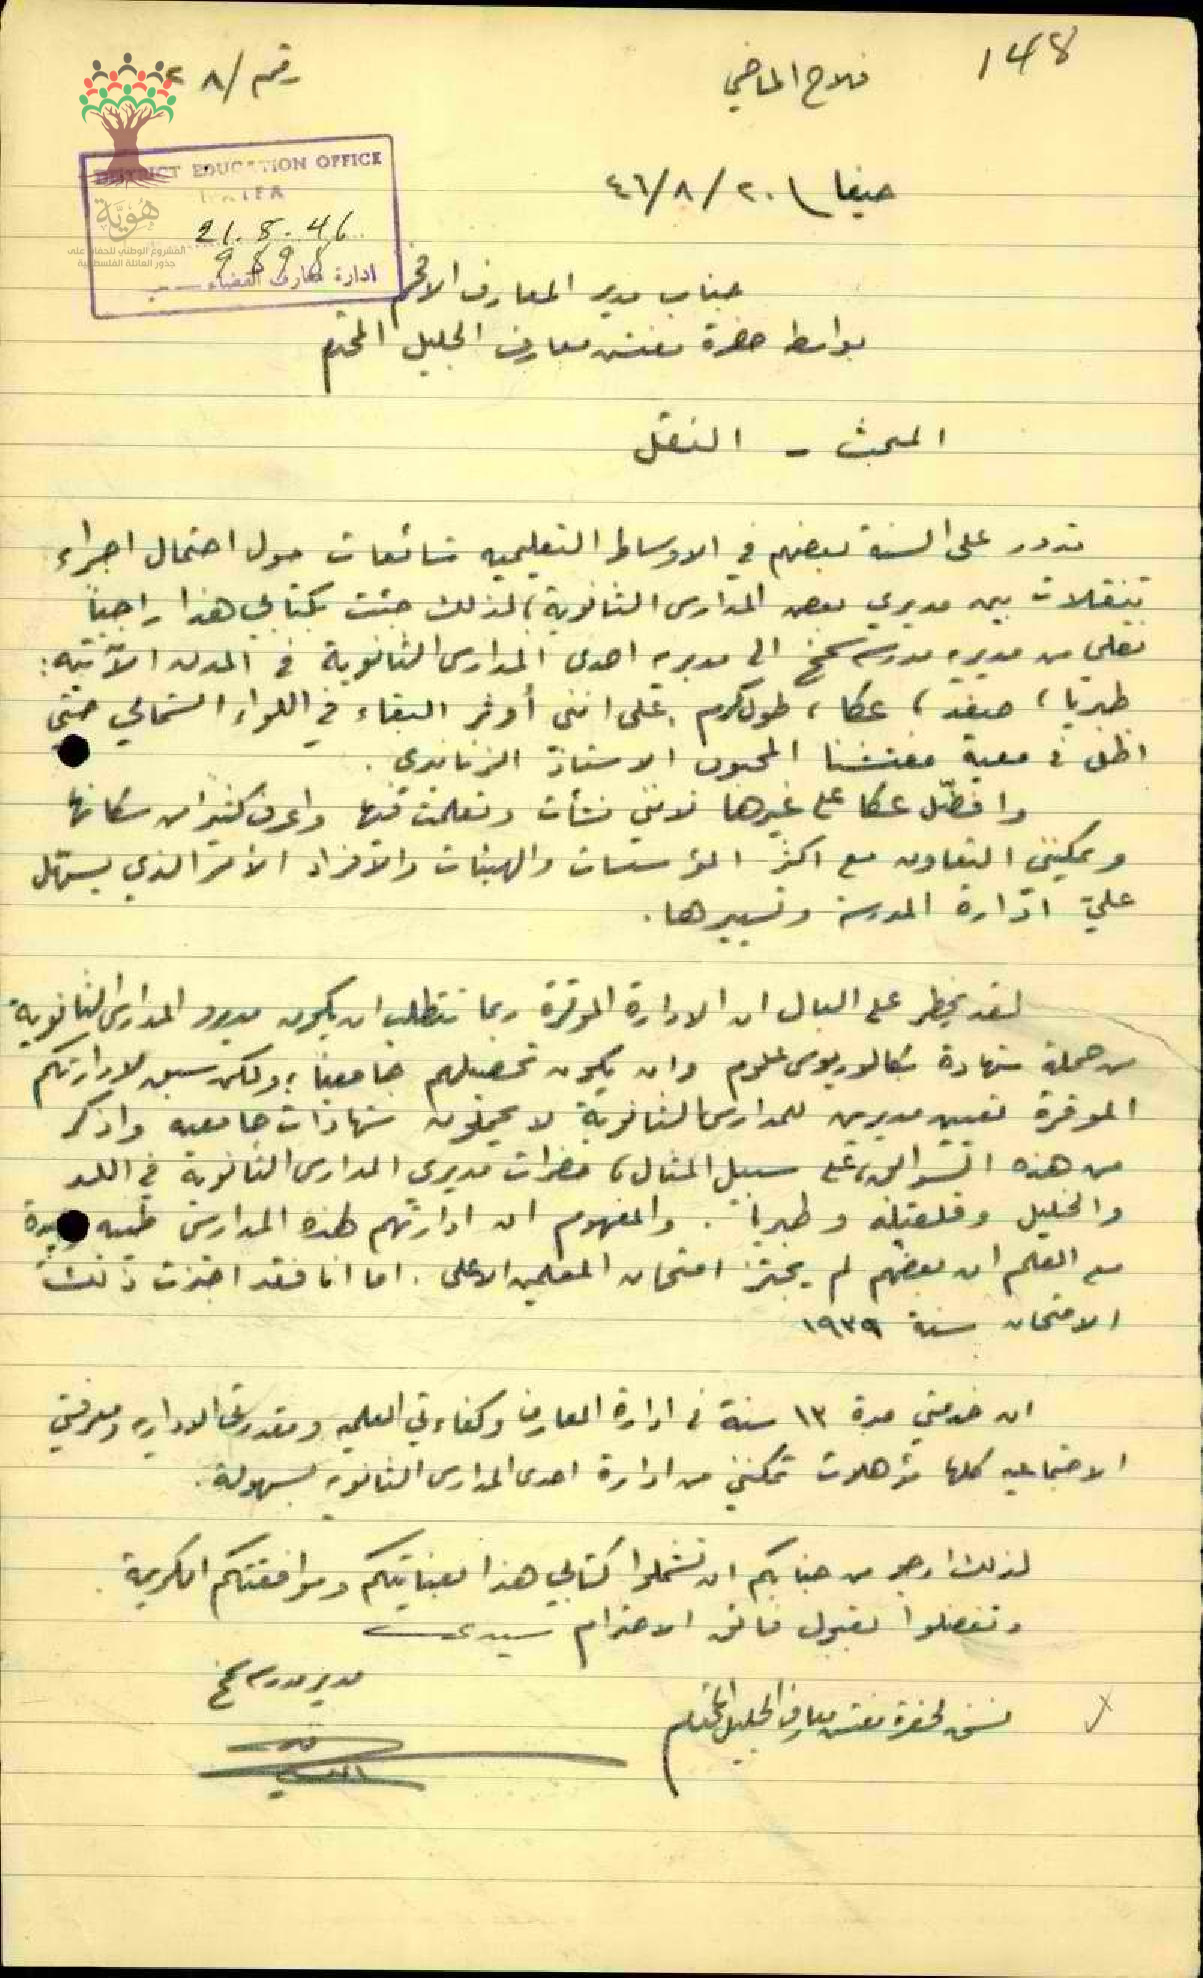 ١٤٨
فلاح الماضي
رقم / ٢٨
DISTRICT EDUCATION OFFICE
HAIFA
21.8.46
9898
ادارة معارف القضاء
هُوِيَّة
المشروع الوطني للحفاظ على
جذور العائلة الفلسطينية
حيفا ٢٠/٨/٤٦
جناب مدير المعارف الافخم
بواسطة حضرة مفتش معارف الجليل المحترم
المبحث - النقل
تدور على السنة بعضهم في الاوساط التعليمية شائعات حول احتمال اجراء
تنقلات بين مديري بعض المدارس الثانوية، لذلك جئت بكتابي هذا راجياً
نقلي من مديرية مدرسة سمخ الى مديرية احدى المدارس الثانوية في المدن الآتية:
طبريا، صفد، عكا، طولكرم. على انني أوثر البقاء في اللواء الشمالي حتى
اظل في معية مفتشنا المحبوب الاستاذ
وافضّل عكا على غيرها لانني نشأت وتعلمت فيها واعرف كثيراً من سكانها
ويمكنني التعاون مع اكثر المؤسسات والهيئات والافراد الأمر الذي يسهّل
عليّ ادارة المدرسة وتسييرها.
لقد يخطر على البال ان الادارة الموقرة ربما تتطلب ان يكون مديرو المدارس الثانوية
من حملة شهادة بكالوريوس علوم وان يكون تحصيلهم جامعياً، ولكن سبق لادارتكم
الموقرة تعيين مديرين للمدارس الثانوية لا يحملون شهادات جامعية واذكر
من هذه على سبيل المثال، حضرات مديري المدارس الثانوية في اللد
والخليل وقلقيلية وطبريا. والمفهوم ان ادارتهم لهذه المدارس طيبة
مع العلم ان بعضهم لم يجتز امتحان المعلمين الاعلى. اما انا فقد اجتزت ذلك
الامتحان سنة ١٩٣٩
ان خدمتي مدة ١٣ سنة في ادارة المعارف وكفاءتي العلمية ومقدرتي الادارية ومعرفتي
الاجتماعية كلها مؤهلات تمكنني من ادارة احدى المدارس الثانوية بسهولة.
لذلك ارجو من جنابكم ان تشملوا كتابي هذا بعنايتكم وموافقتكم الكريمة
وتفضلوا بقبول فائق الاحترام سيدي
مدير مدرسة سمخ
نسخة لحضرة مفتش معارف الجليل المحترم